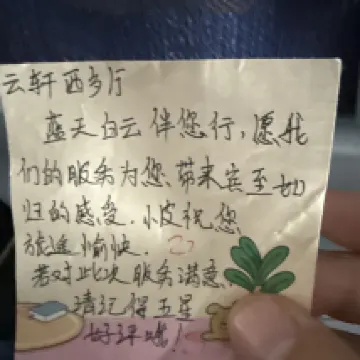 云轩西多厅
蓝天白云伴您行,愿我
们的服务为您带来宾至如
归的感受.小皮祝您
旅途愉快.
若对此次服务满意,
请记得五星
好评哦!